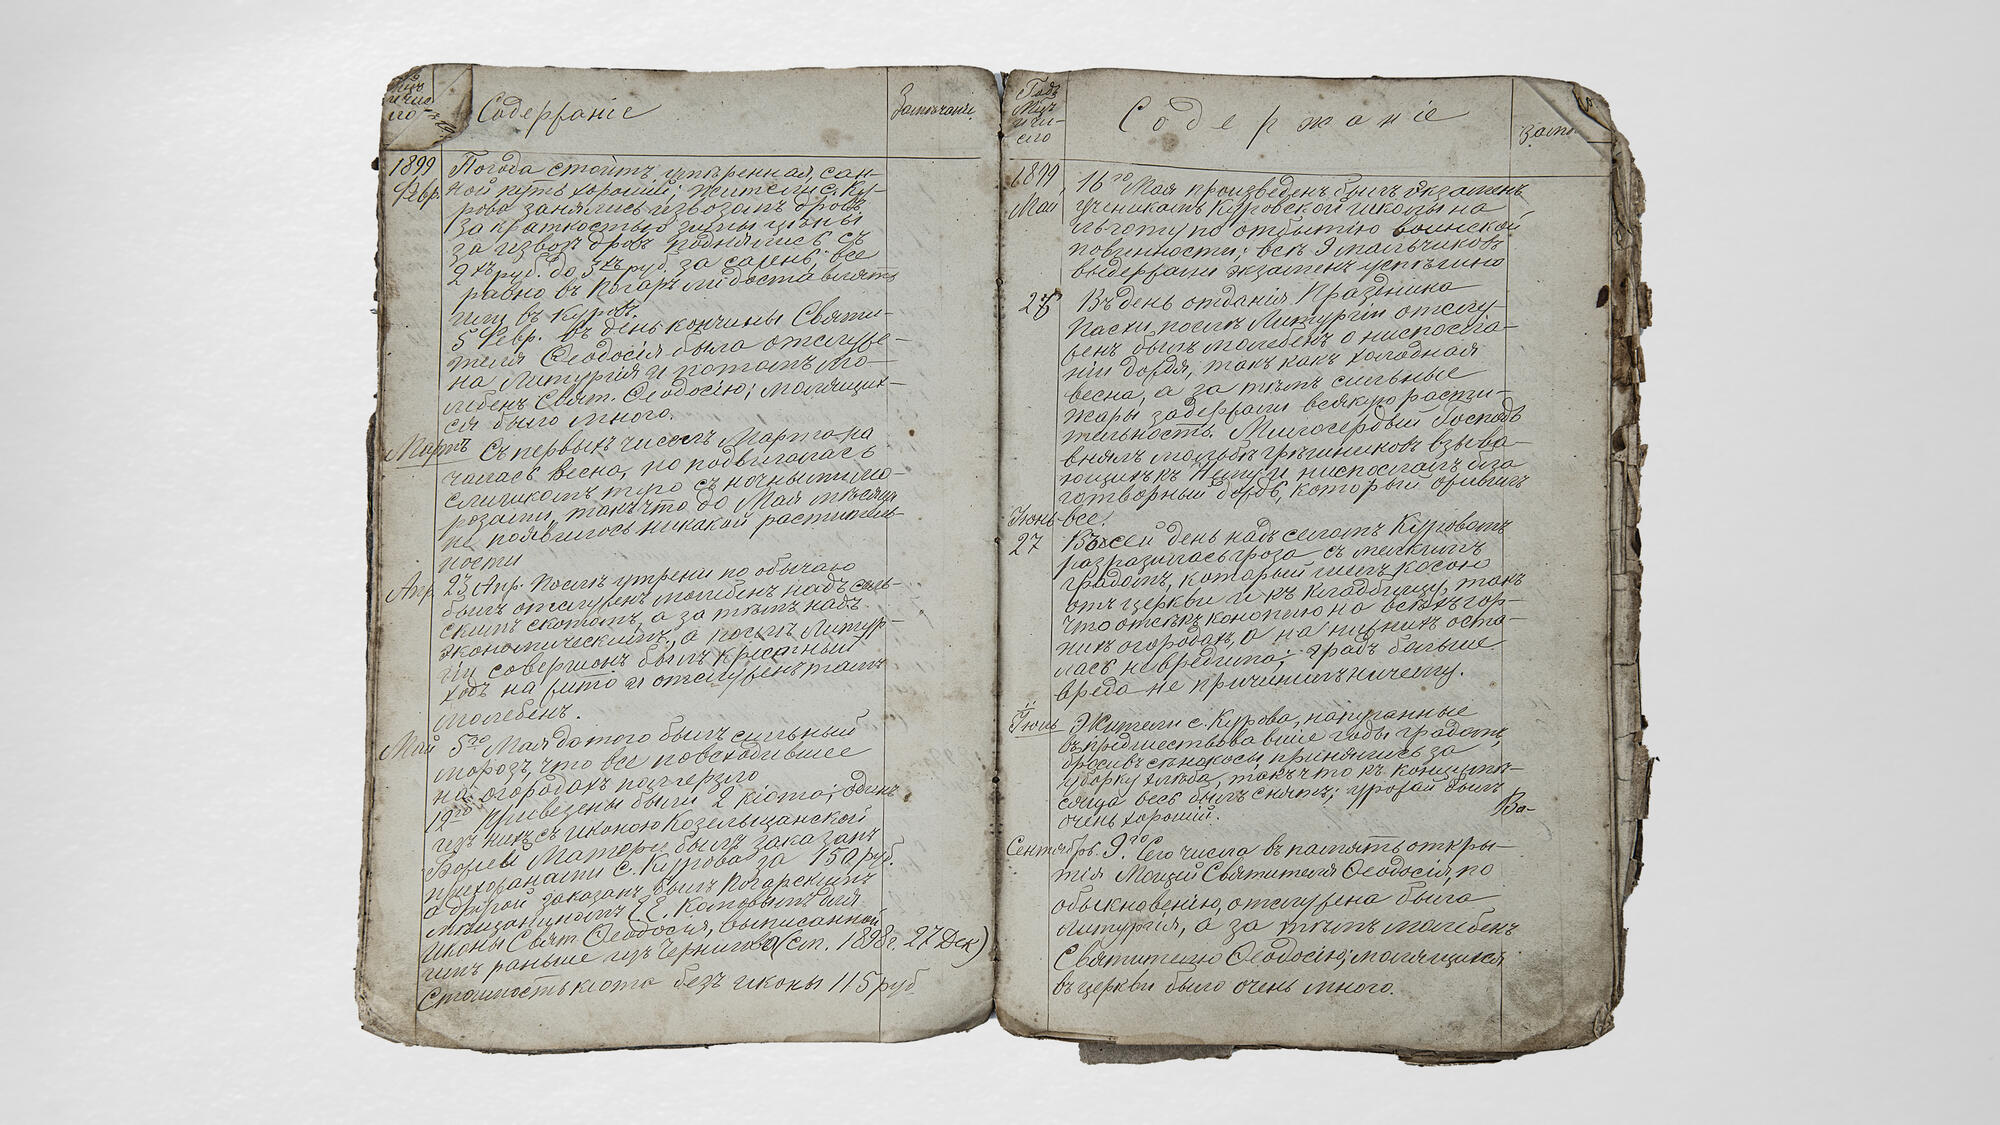 мѣц
и чис
ло
Содержаніе
Замѣчаніе
1899
Февр.
Погода стоитъ умѣренная, сан-
ной путь хорошій; жители с. Ку-
рова занялись извозомъ дровъ
За краткостью зимы цѣны
за извозъ дровъ поднялись съ
2хъ руб. до 3хъ руб. за сажень; все
равно въ Погаръ ли доставлять
или въ Куровъ.
5го Февр. въ день кончины Святи-
теля Ѳеодосія была отслуже-
на Литургія и потомъ мо-
лебенъ Свят. Ѳеодосію; молящих-
ся было много.
Мартъ
Съ первыхъ чиселъ Марта на
чалась весна, но подвигалась
слишкомъ туго съ ночными мо-
розами, такъ что до Мая мѣсяца
не появилось никакой раститель-
ности
Апр.
23 Апр. Послѣ утрени по обычаю
былъ отслуженъ молебенъ надъ сель-
скимъ скотомъ, а за тѣмъ надъ
экономическимъ, а послѣ Литур-
гіи совершонъ былъ крестный
ходъ на жито и отслуженъ тамъ
молебенъ.
Май
5го Мая до того былъ сильный
морозъ, что все повсходившее
на огородахъ померзло
12го Привезены были 2 кіота; одинъ
изъ нихъ съ иконою Козельщанской
Божіей Матери былъ заказанъ
прихожанами с. Курова за 150 руб.
а другой заказанъ былъ Погарскимъ
мѣщаниномъ Е. Котовымъ для
иконы Свят. Ѳеодосія, выписанной
имъ раньше изъ Чернигова (см. 1898 г. 27 Дек)
Стоимость кіота безъ иконы 115 руб
Годъ
Мѣц
и чи-
сло
Содержаніе
Замѣ
1899
Май
16го Мая произведенъ былъ экзаменъ
ученикамъ Куровской школы на
льготу по отбытію воинской
повинности; всѣ 9 мальчиковъ
выдержали экзаменъ успѣшно
27
Въ день отданія Праздника
Пасхи, послѣ Литургіи отслу-
женъ былъ молебенъ о ниспосла-
ніи дождя, такъ какъ холодная
весна, а за тѣмъ сильные
жары задержали всякую расти-
тельность. Милосердый Господь
внялъ мольбѣ грѣшниковъ взыва-
ющихъ къ Нему и ниспослалъ бла
готворный дождь, который оживилъ
все.
Іюнь
27
Въ сей день надъ селомъ Куровомъ
разразилась гроза съ мелкимъ
градомъ, который шелъ косою
отъ церкви и къ кладбищу, такъ
что отсѣкъ коноплю на всѣхъ гор-
нихъ огородахъ, а на нижнихъ оста-
лась невредима; градъ больше
вреда не причинилъ ничему.
Іюль
Жители с. Курова, напуганные
въ предшествовавшіе годы градомъ,
бросивъ сѣнокосы, принялись за
уборку хлѣба, такъ что къ концу мѣ-
сяца весь былъ снятъ; урожай былъ
очень хорошій.
Сентябрь.
9го. Сего числа въ память откры-
тія Мощей Святителя Ѳеодосія, по
обыкновенію, отслужена была
литургія, а за тѣмъ молебенъ
Святителю Ѳеодосію; молящихся
въ церкви было очень много.